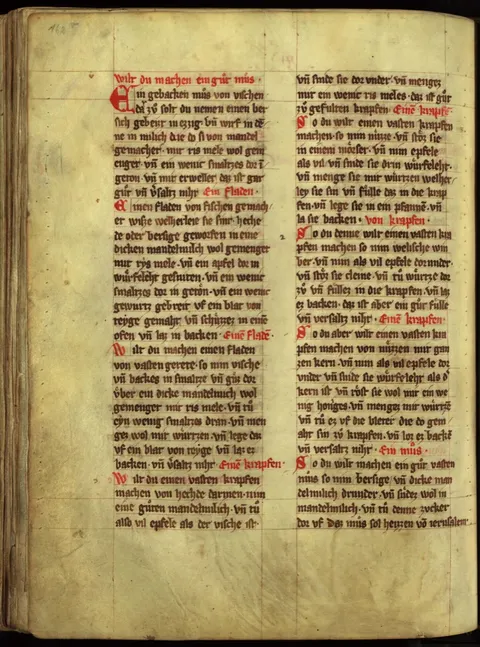 wilt du machen ein gůt můs ·
Ein gebacken můs von vischen
daz zv̊ solt du nemen einen ber
sich gebeizt in ezzig · vn̄ wirf in de
ne in milich die do si von mandel
gemachet · mit ris mele wol gem
enget · vn̄ ein wenic smaltzes dor i
geton · vn̄ mit erwellet daz ist gar
gůt vn̄ v̓saltz niht · Ein fladen ·
Einen fladen von fischen gemach
et wiltu welherleie sie sint heche
de oder bersige geworfen in eine
dicken mandelmilch wol gemenget
mit rys mele · vn̄ ein apfel dor in
würfeleht gesniten · vn̄ ein wenic
smaltzes dor in getōn · vn̄ ein wenic
gewurtz gebreit vf ein blat von
teyge gemaht · vn̄ schüzzez in einē
ofen vn̄ laz in backen · Einē fladē ·
Wilt du machen einen fladen
von vasten gerete · so nim vische
vn̄ backes in smaltze · vn̄ güz dor
über ein dicke mandelmilch wol
gemenget mit ris mele · vn̄ tů
eyn wenig smaltzes dran · vn̄ men
gez wol mit wurtzen · vn̄ lege daz
vf ein blat von teyge · vn̄ laz ez
backen · vn̄ v̓saltz niht · Einē krapfen ·
Wilt du einen vasten krapfen
machen von hechde darmen · nim
eine gůten mandelmilch · vn̄ tů
also vil epfele als der vische ist
vn̄ snide sie dor vnder · vn̄ mengez
mit ein wenic ris meles · daz ist gůt
zv̊ gefulten krapfen · Einē krapfē ·
So du wilt einen vasten krapfen
machen · so nim nüzze · vn̄ stōz sie
in einem mōrser · vn̄ nim epfele
als vil vn̄ snide sie drin würfeleht ·
vn̄ menge sie mit würtzen welher
ley sie sin vn̄ fülle daz in die krap
fen · vn̄ lege sie in ein pfannē · vn̄
la sie backen · von krapfen ·
So du denne wilt einen vasten kra
pfen machen so nim welische win
ber · vn̄ nim als vil epfele dorunder ·
vn̄ stōz sie cleine · vn̄ tů würtze dor
zů vn̄ füllez in die krapfen · vn̄ laz
ez backen · daz ist aber ein gůt fülle
vn̄ versaltz niht · Einē krapfen ·
So du aber wilt einen vasten kra
pfen machen von nüzzen mit gan
tzen kern · vn̄ nim als vil epfele dor
vnder vn̄ snide sie würfeleht als d̓
kern ist vn̄ rōst sie wol mit ein we
nig honiges · vn̄ mengez mit würtzē
vn̄ tů ez vf die bleter die do gem
aht sin zů krapfen · vn̄ loz ez backē
vn̄ versaltz niht · Ein můs ·
So du wilt machen ein gůt vasten
můs so nim bersige · vn̄ dicke man
delmilch drunder · vn̄ südez wol in
mandelmilch · vn̄ tů denne zucker
dor vf Daz můs sol heizzen vō ierusalem ·